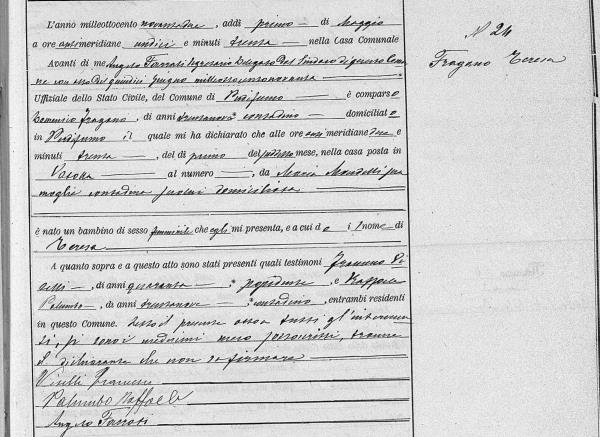 L'anno milleottocento novantadue, addì primo di Maggio
a ore antimeridiane undici e minuti trenta nella Casa Comunale
Avanti di me Angelo Segretario Delegato del Sindaco di questo Comu
ne con atto del quindici giugno milleottocentonovanta
Uffiziale dello Stato Civile, del Comune di Perdifumo è comparso
Domenico Fragano, di anni trentanove contadino domiciliato
in Perdifumo il quale mi ha dichiarato che alle ore antimeridiane due e
minuti trenta, del dì primo del mese, nella casa posta in
al numero, da Maria sua
moglie contadina domiciliata
è nato un bambino di sesso femminile che egli mi presenta, e a cui dà il nome di
Teresa
A quanto sopra e a questo atto sono stati presenti quali testimoni
di anni quaranta possidente, e Raffaele
Palumbo, di anni trentanove contadino, entrambi residenti
in questo Comune. Letto il presente atto a tutti gl'interven
ti, si sono i medesimi meco sottoscritti, tranne
il dichiarante che non sa firmare
Palumbo Raffaele
Angelo
N 24
Fragano Teresa